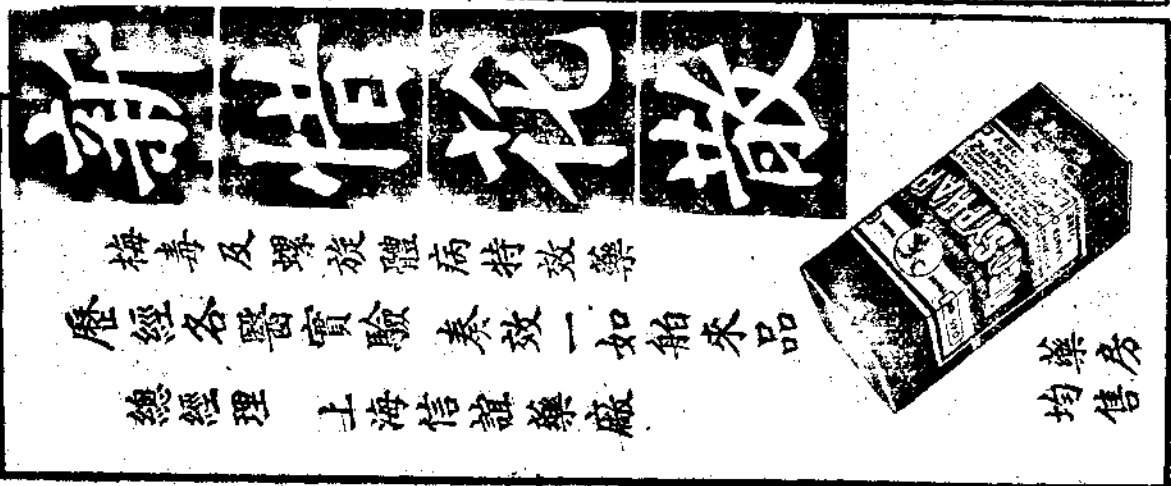 新惜花散
梅毒及螺旋體病特效藥
歷經各醫實驗 奏效一如舶來品
總經理 上海信誼藥廠
藥房
均售